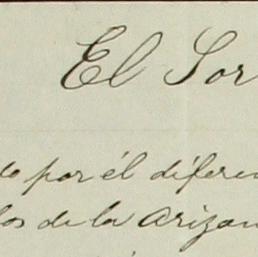 El Sor
do por él difere
los de la Arizon